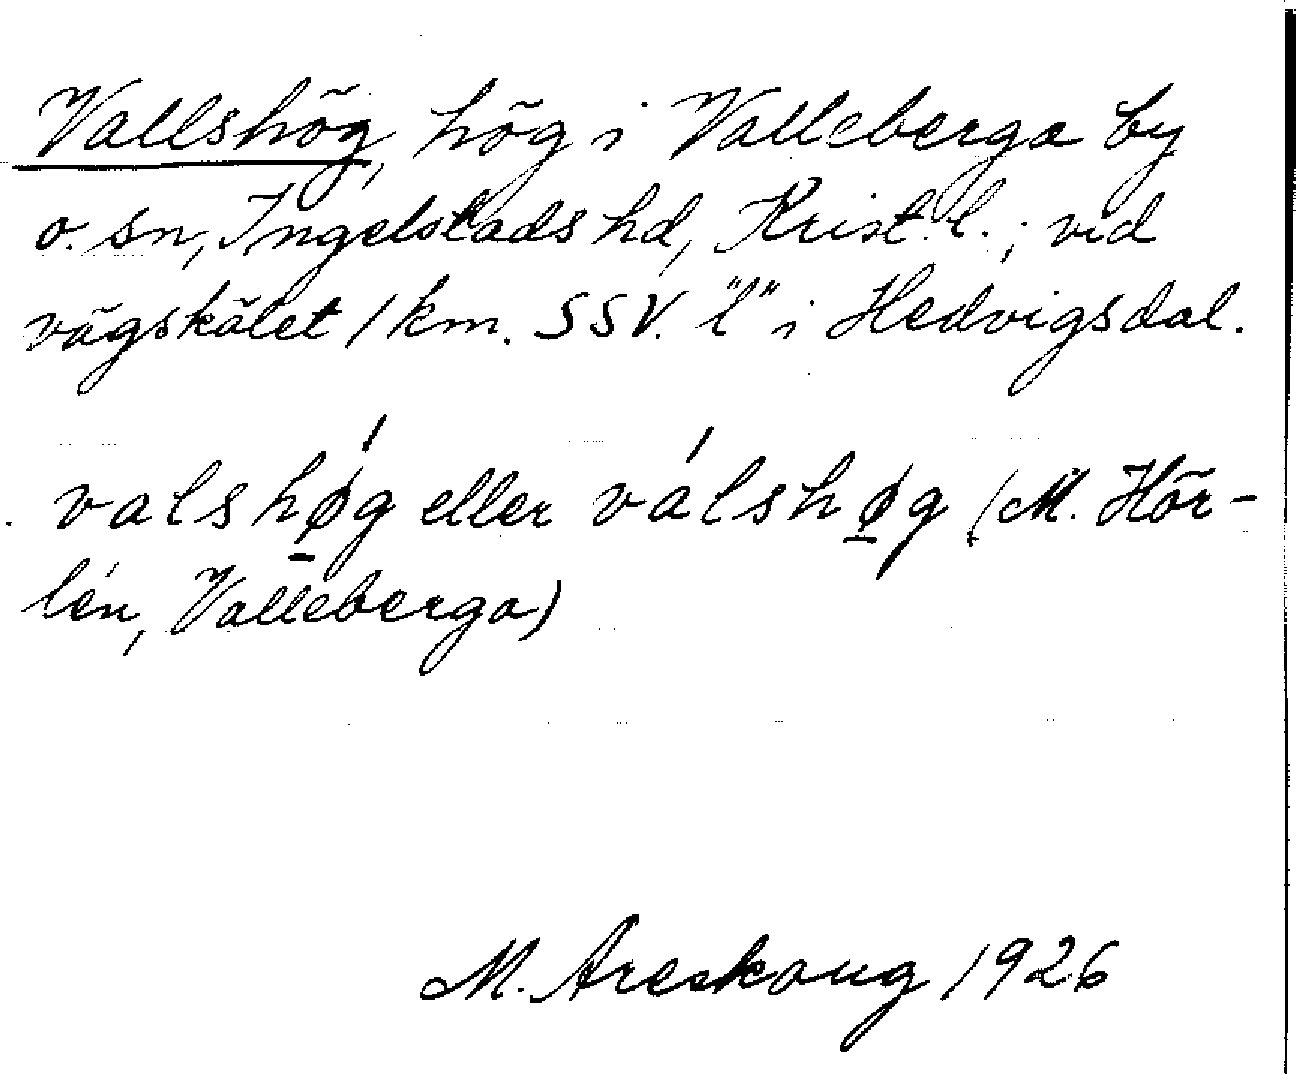 Vallshög, hög i Valleberga by
o. sn, Ingelstads hd, Krist. l.; vid
vägskälet 1 km. SSV. "l" i Hedvigsdal.
valshǿ̠g eller válshø̠g (M. Hör-
lén, Valleberga)
M. Areskoug 1926